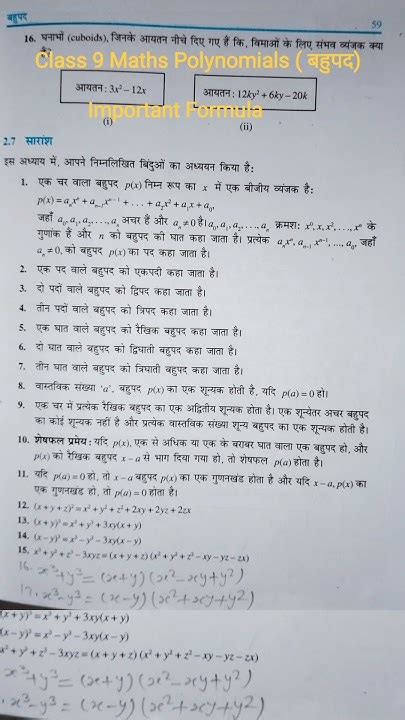 बहुपद
59
16. घनाभों (cuboids), जिनके आयतन नीचे दिए गए हैं कि, विमाओं के लिए संभव व्यंजक क्या
हैं?
Class 9 Maths Polynomials ( बहुपद)
आयतन : 3x² – 12x
आयतन : 12ky² + 6ky – 20k
Important Formula
(i)
(ii)
2.7 सारांश
इस अध्याय में, आपने निम्नलिखित बिंदुओं का अध्ययन किया है:
1. एक चर वाला बहुपद p(x) निम्न रूप का x में एक बीजीय व्यंजक है:
p(x) = aₙxⁿ + aₙ₋₁xⁿ⁻¹ + . . . + a₂x² + a₁x + a₀,
जहाँ a₀, a₁, a₂, . . ., aₙ अचर हैं और aₙ ≠ 0 है। a₀, a₁, a₂, . . ., aₙ क्रमशः x⁰, x, x², . . ., xⁿ के
गुणांक हैं और n को बहुपद को घात कहा जाता है। प्रत्येक aₙxⁿ, aₙ₋₁ xⁿ⁻¹, ..., a₀, जहाँ
aₙ ≠ 0, को बहुपद p(x) का पद कहा जाता है।
2. एक पद वाले बहुपद को एकपदी कहा जाता है।
3. दो पदों वाले बहुपद को द्विपद कहा जाता है।
4. तीन पदों वाले बहुपद को त्रिपद कहा जाता है।
5. एक घात वाले बहुपद को रैखिक बहुपद कहा जाता है।
6. दो घात वाले बहुपद को द्विघाती बहुपद कहा जाता है।
7. तीन घात वाले बहुपद को त्रिघाती बहुपद कहा जाता है।
8. वास्तविक संख्या 'a', बहुपद p(x) का एक शून्यक होती है, यदि p(a) = 0 हो।
9. एक चर में प्रत्येक रैखिक बहुपद का एक अद्वितीय शून्यक होता है। एक शून्येतर अचर बहुपद
का कोई शून्यक नहीं है और प्रत्येक वास्तविक संख्या शून्य बहुपद का एक शून्यक होती है।
10. शेषफल प्रमेय : यदि p(x), एक से अधिक या एक के बराबर घात वाला एक बहुपद हो, और
p(x) को रैखिक बहुपद x – a से भाग दिया गया हो, तो शेषफल p(a) होता है।
11. यदि p(a) = 0 हो, तो x – a बहुपद p(x) का एक गुणनखंड होता है और यदि x – a, p(x) का
एक गुणनखंड हो, तो p(a) = 0 होता है।
12. (x + y + z)² = x² + y² + z² + 2xy + 2yz + 2zx
13. (x + y)³ = x³ + y³ + 3xy(x + y)
14. (x – y)³ = x³ – y³ – 3xy(x – y)
15. x³ + y³ + z³ – 3xyz = (x + y + z) (x² + y² + z² – xy – yz – zx)
16. x³+y³ = (x+y) (x²-xy+y²)
17. x³-y³ = (x-y) (x²+xy+y²)
(x + y)³ = x³ + y³ + 3xy(x + y)
(x – y)³ = x³ – y³ – 3xy(x – y)
x³ + y³ + z³ – 3xyz = (x + y + z) (x² + y² + z² – xy – yz – zx)
x³+y³ = (x+y) (x²-xy+y²)
. x³-y³ = (x-y) (x²+xy+y²)